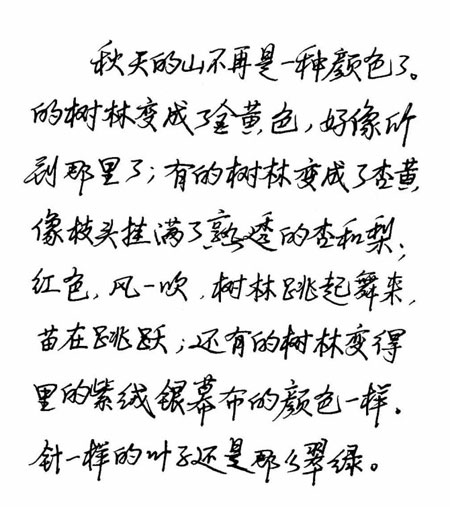 秋天的山不再是一种颜色了。
的树林变成了金黄色，好像所
到那里了；有的树林变成了杏黄
像枝头挂满了熟透的杏和梨；
红色，风一吹，树林跳起舞来，
苗在跳跃；还有的树林变得
里的紫绒银幕布的颜色一样。
针一样的叶子还是那么翠绿。